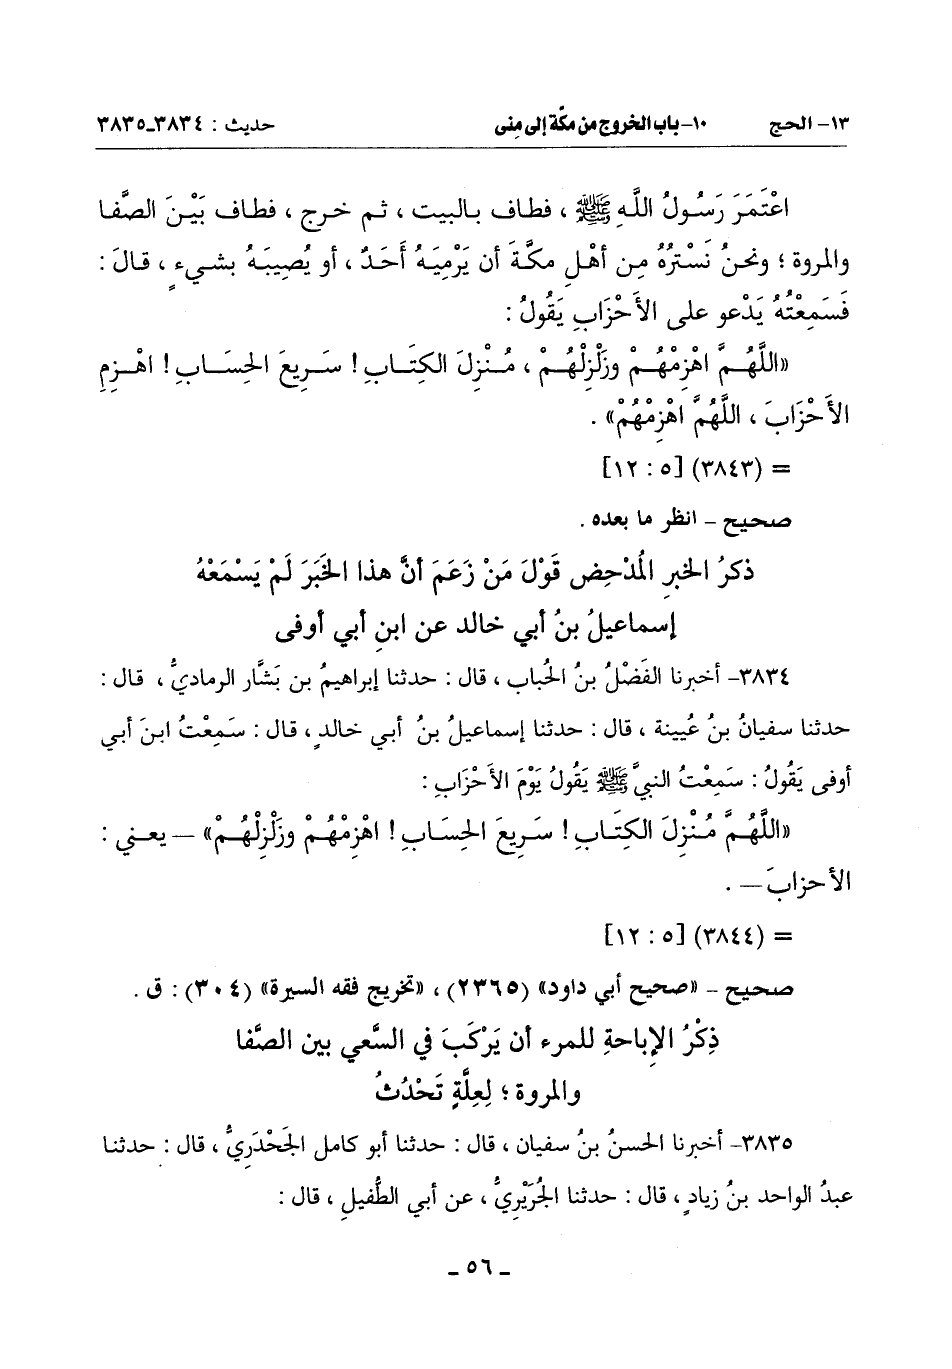 ١٣- الحج ١٠-باب الخروج من مكّة إلى مِنى حديث : ٣٨٣٤-٣٨٣٥
اعْتَمَرَ رَسُولُ اللَّهِ ﷺ ، فطاف بالبيت ، ثم خرج ، فطاف بَيْنَ الصَّفا
والمروة ؛ ونحنُ نَسْتُرُهُ مِن أهْلِ مكَّةَ أن يَرْمِيَهُ أَحَدٌ ، أو يُصِيبَهُ بشيءٍ ، قالَ :
فَسَمِعْتُهُ يَدْعو على الأَحْزَابِ يَقُولُ :
«اللَّهُمَّ اهْزِمْهُمْ وزَلْزِلْهُمْ ، مُنْزِلَ الكِتَابِ ! سَرِيعَ الحِسَابِ ! اهْزِمِ
الأَحْزَابَ ، اللَّهُمَّ اهْزِمْهُمْ» .
= (٣٨٤٣) [٥ : ١٢]
صحيح - انظر ما بعده .
ذكرُ الخبرِ المُدْحِضِ قَوْلَ مَنْ زَعَمَ أنَّ هذا الخَبَرَ لَمْ يَسْمَعْهُ
إسماعيلُ بنُ أبي خالد عن ابنِ أبي أوفى
٣٨٣٤- أخبرنا الفَضْلُ بنُ الحُباب ، قال : حدثنا إبراهيمُ بن بَشَّار الرماديُّ ، قال :
حدثنا سفيانُ بنُ عُيينة ، قال : حدثنا إسماعيلُ بنُ أبي خالدٍ ، قال : سَمِعْتُ ابنَ أبي
أوفى يَقُولُ : سَمِعْتُ النبيَّ ﷺ يَقُولُ يَوْمَ الأَحْزَابِ :
«اللَّهُمَّ مُنْزِلَ الكِتَابِ ! سَرِيعَ الحِسَابِ ! اهْزِمْهُمْ وزَلْزِلْهُمْ» — يعني :
الأحزابَ — .
= (٣٨٤٤) [٥ : ١٢]
صحيح - «صحيح أبي داود» (٢٣٦٥) ، «تخريج فقه السيرة» (٣٠٤) : ق .
ذِكْرُ الإباحةِ للمرء أن يَرْكَبَ في السَّعي بين الصَّفا
والمروة ؛ لِعِلَّةٍ تَحْدُثُ
٣٨٣٥- أخبرنا الحسنُ بنُ سفيان ، قال : حدثنا أبو كامل الجَحْدَرِيُّ ، قال : حدثنا
عبدُ الواحد بنُ زيادٍ ، قال : حدثنا الجُرَيْرِيُّ ، عن أبي الطُّفيلِ ، قال :
- ٥٦ -